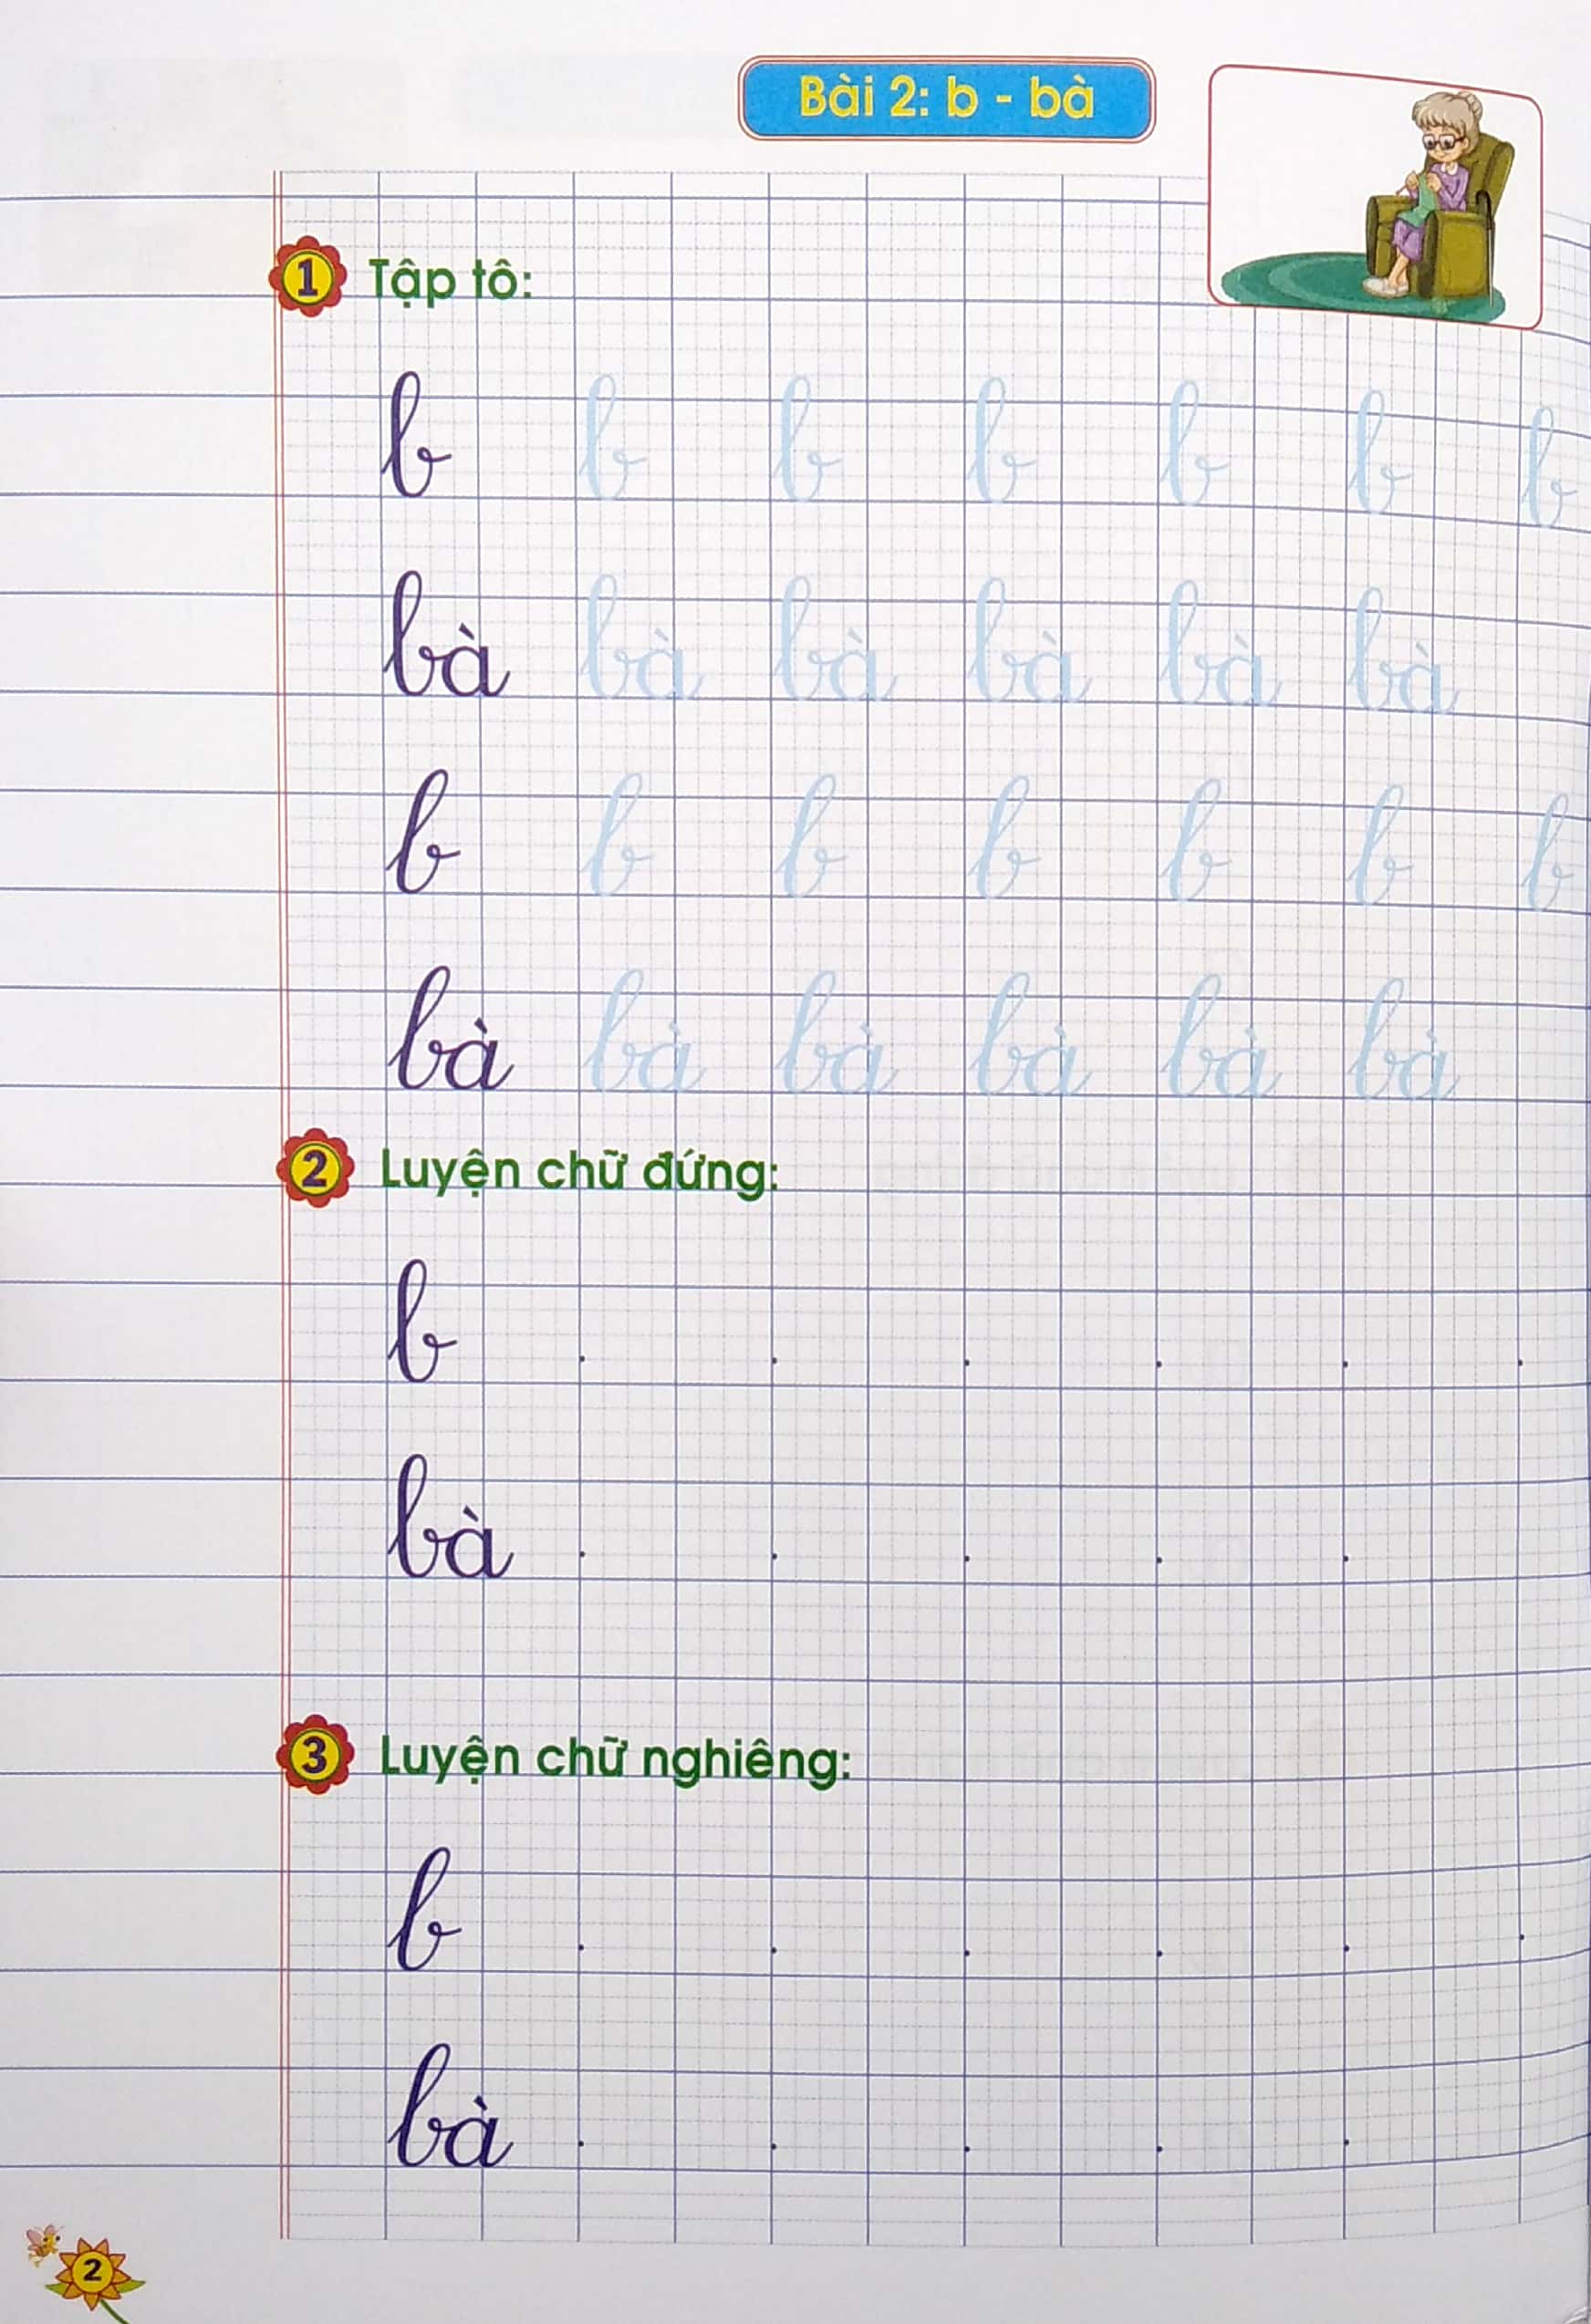 Bài 2: b - bà
1 Tập tô:
b b b b b b b
bà bà bà bà bà bà
b b b b b b b
bà bà bà bà bà bà
2 Luyện chữ đứng:
b
bà
3 Luyện chữ nghiêng:
b
bà
2